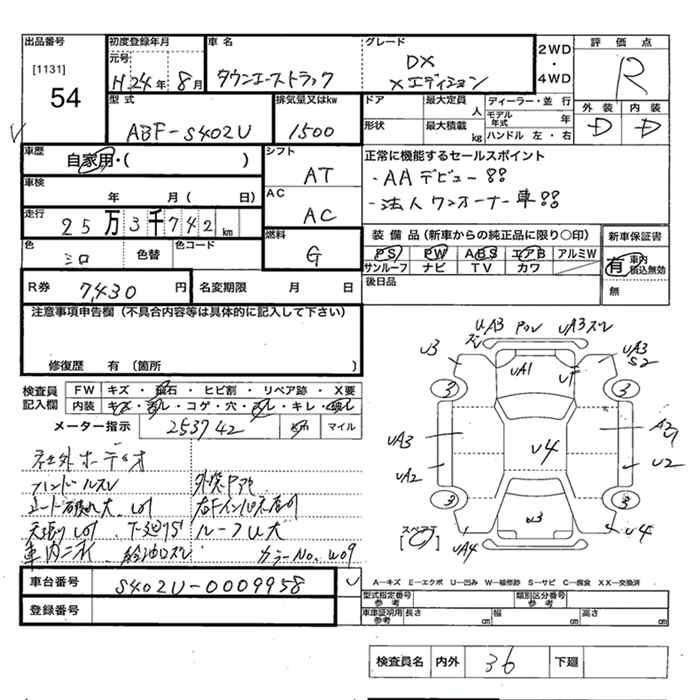 出品番号
[1131]
54
初度登録年月
元号
H 24年 8月
車名
タウンエーストラック
グレード
DX
Xエディション
2WD・4WD
評価点
R
外装 内装
D D
型式
ABF-S402U
排気量又はkw
1500
ドア
形状
最大定員 人
最大積載 kg
ディーラー・並行
モデル年式 年
ハンドル 左・右
車歴
自家用・( )
シフト
AT
正常に機能するセールスポイント
・AAデビュー!!
・法人ワンオーナー車!!
車検
年 月( 日)
AC
AC
走行
25万3千742km
色
シロ
色替
色コード
燃料
G
装備品(新車からの純正品に限り○印)
PS PW ABS エアB アルミW
サンルーフ ナビ TV カワ
後日品
新車保証書
有 車内積込無効
無
R券
7,430円
名変期限 月 日
注意事項申告欄(不具合内容等は具体的に記入して下さい)
修復歴 有(箇所 )
検査員記入欄
FW キズ・飛石・ヒビ割・リペア跡・X要
内装 キズ・汚レ・コゲ・穴・スレ・キレ・
メーター指示
253742
Km マイル
社外オーデオ
ハンドルスレ
外装
ルーフU大
車内ニオイ
カラーNo. W09
車台番号
S402U-0009958
登録番号
UA3 ズレ
UA3ズレ
U3
UA1
UA3
S2
3
3
UA3
UA2
U4
A2
U2
3
3
U3
UA4
U4
スペアT
[ ]
A―キズ E―エクボ U―凹み W―補修跡 S―サビ C―腐食 XX―交換済
型式指定番号 参考
類別区分番号 参考
車庫証明用 参考
長さ cm
幅 cm
高さ cm
検査員名 内外 36 下廻